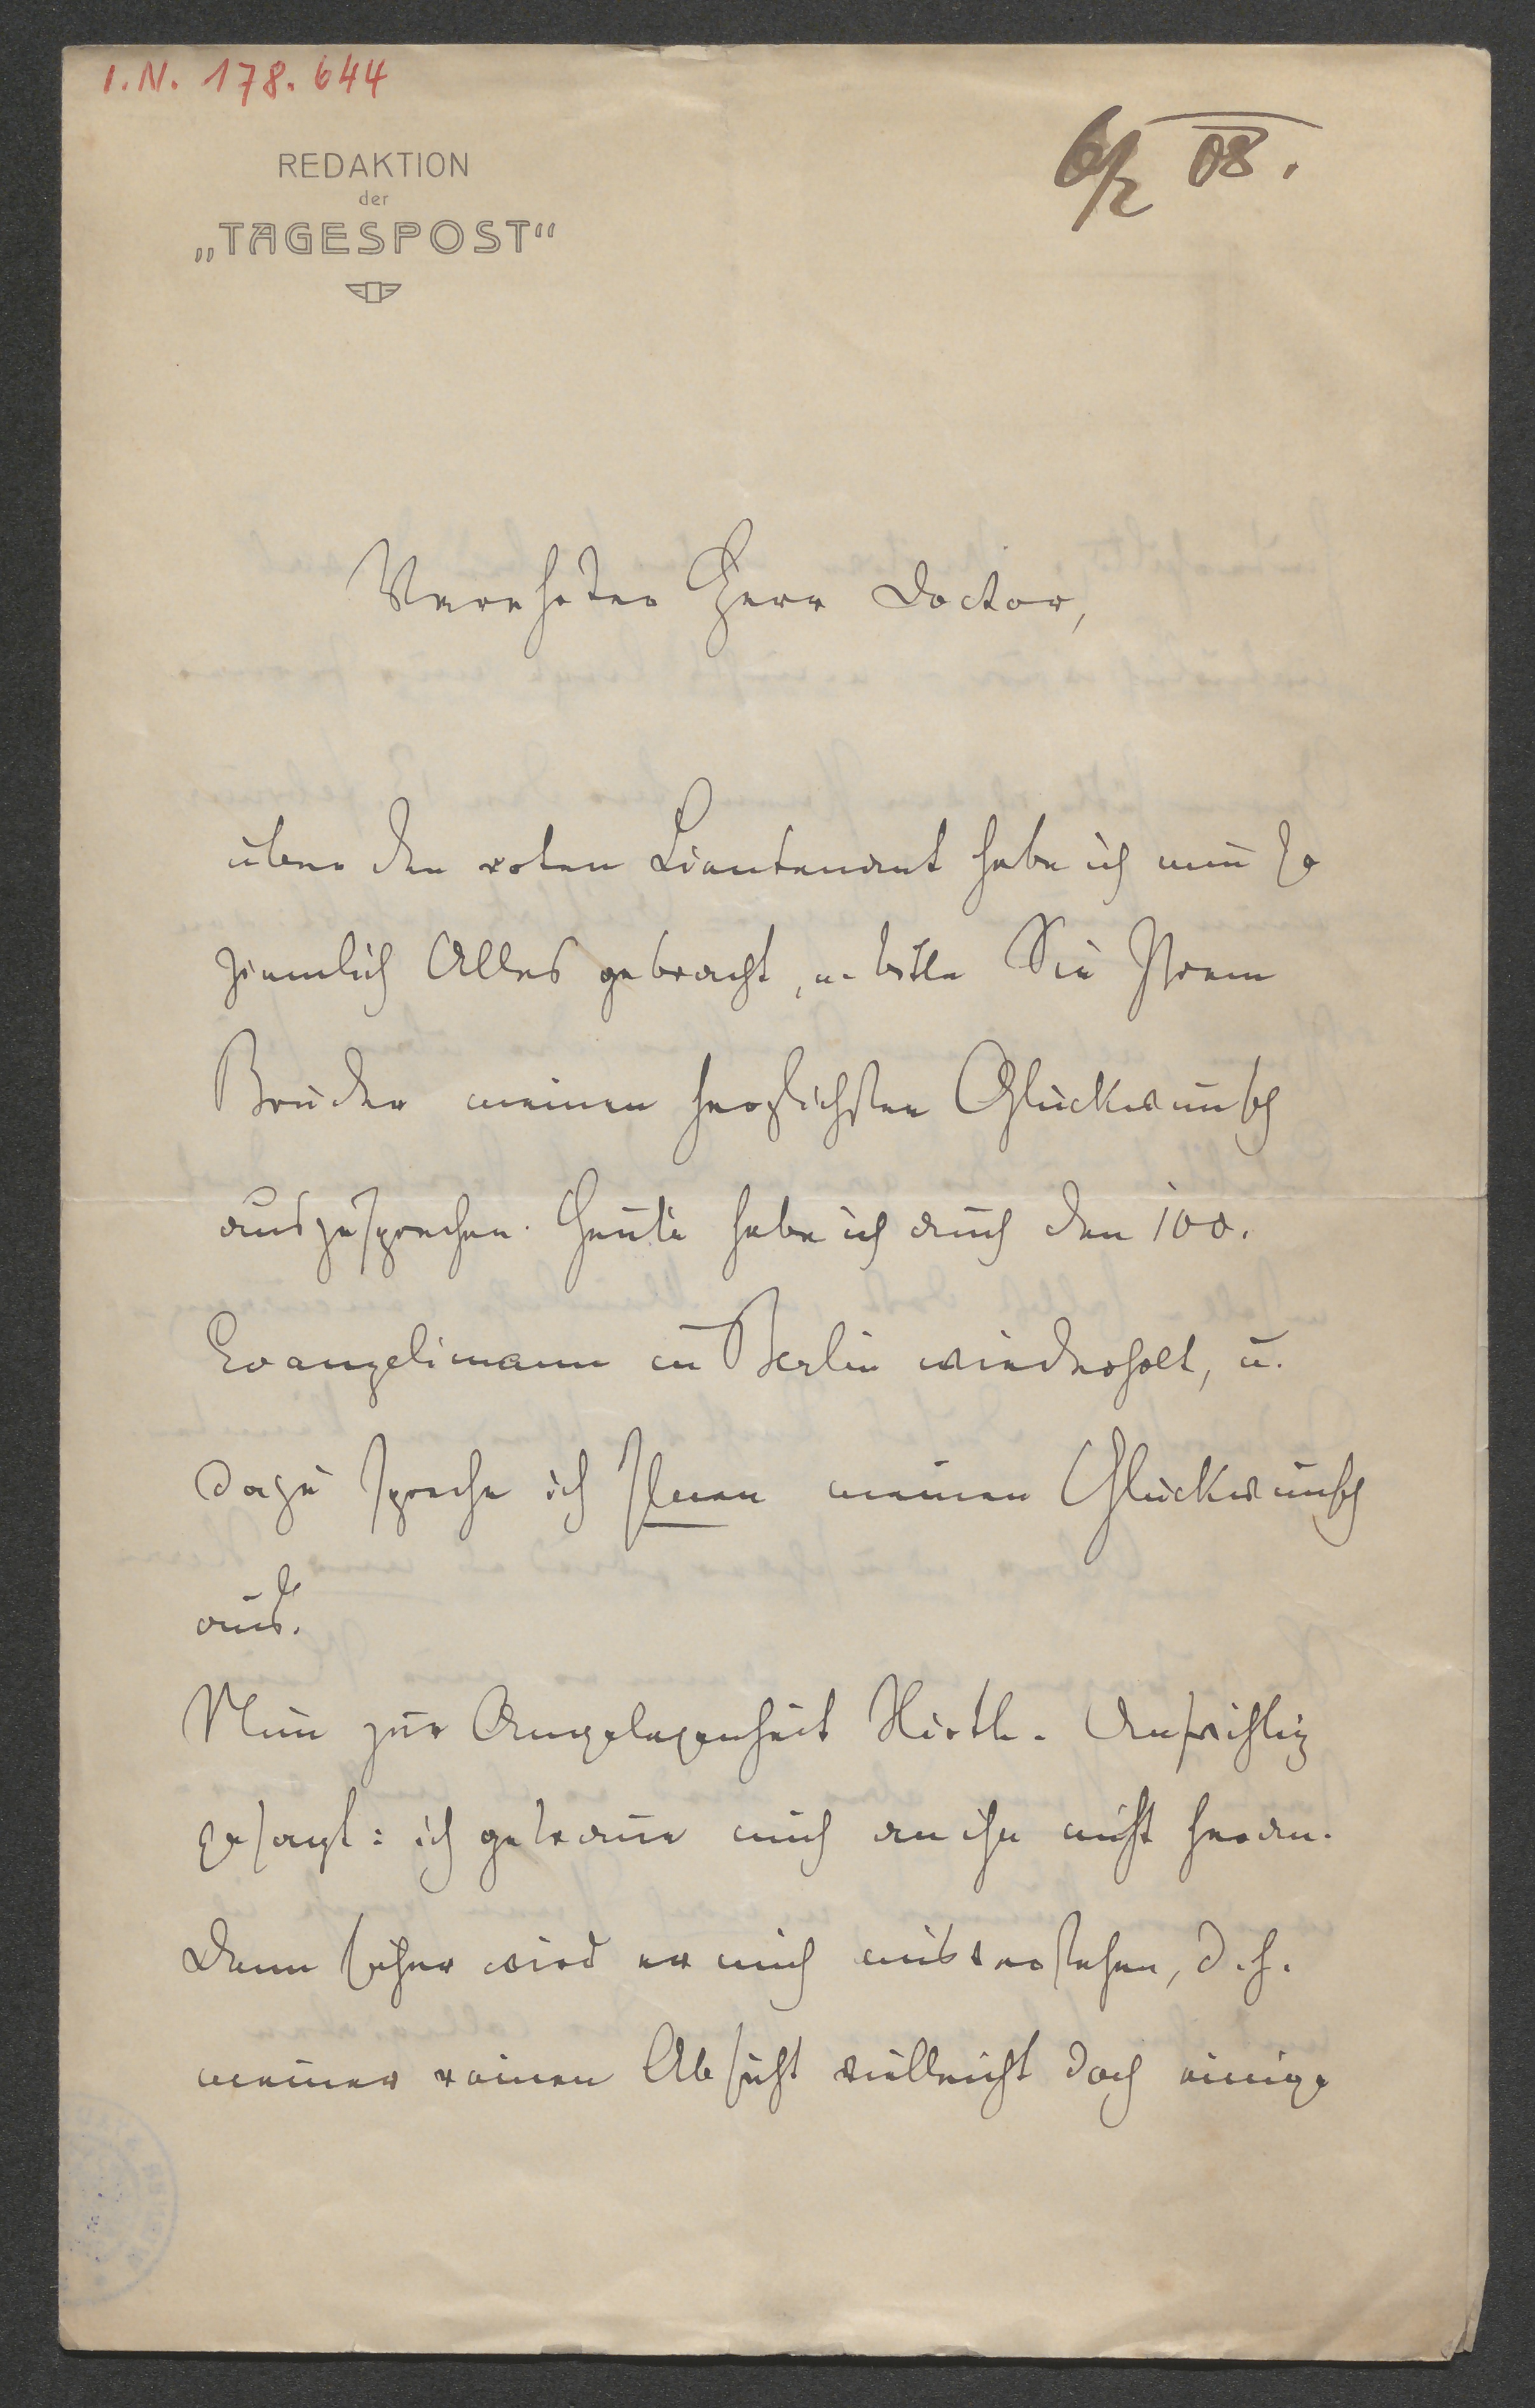 I.N. 178.644
6/2 08.
REDAKTION
der
„TAGESPOST“
Verehrter Herr Doctor,
über den roten Lieutenant habe ich nun so
ziemlich Alles gebracht, u. bitte Sie Ihrem
Bruder meinen herzlichsten Glückwunsch
auszusprechen. Heute habe ich auch den 100.
Evangelimann in Berlin wiederholt, u.
dazu spreche ich Ihnen meinen Glückwunsch
aus.
Nun zur Angelegenheit Hirth. Aufrichtig
gesagt: ich getraue mich an ihn nicht heran.
Denn sicher wird er mich misverstehen, d. h.
meiner reinen Absicht vielleicht doch einige